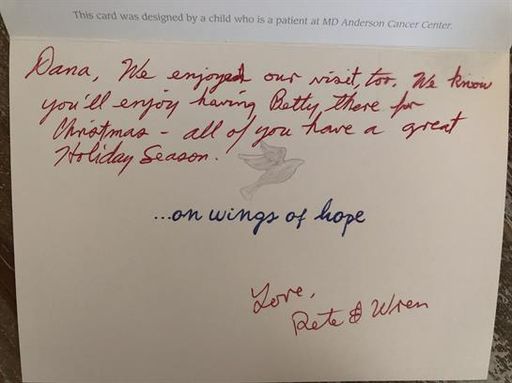 This card was designed by a child who is a patient at MD Anderson Cancer Center.
Dana, We enjoyed our visit, too. We know
you'll enjoy having Betty there for
Christmas - all of you have a great
Holiday Season.
...on wings of hope
Love,
Pete & Wren